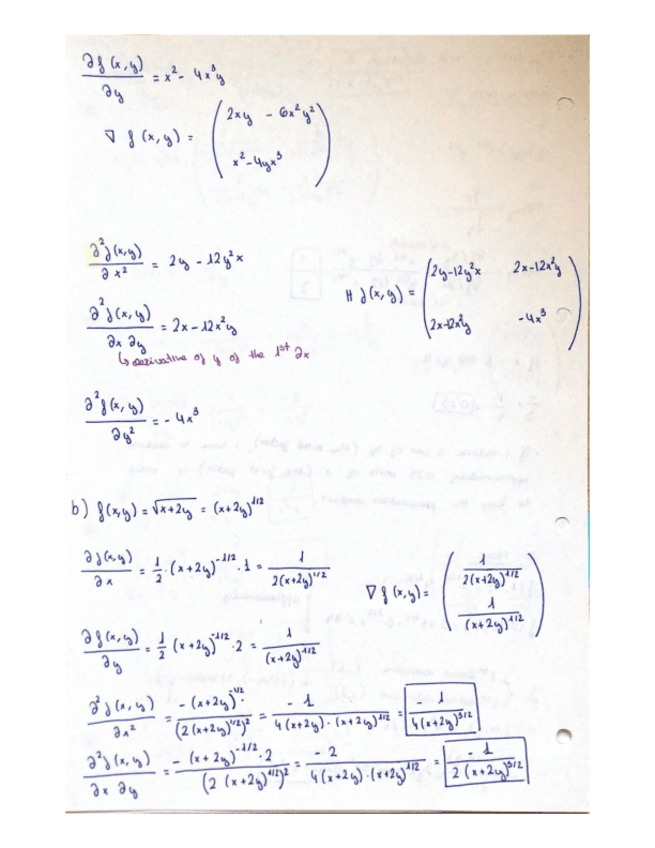 ∂f(x,y)/∂y = x² - 4x³y
∇ f(x,y) = ( 2xy - 6x²y² ; x² - 4yx³ )
∂²f(x,y)/∂x² = 2y - 12y²x
H f(x,y) = ( 2y-12y²x  2x-12x²y ; 2x-12x²y  -4x³ )
∂²f(x,y)/∂x ∂y = 2x - 12x²y
↳ derivative of y of the 1st ∂x
∂²f(x,y)/∂y² = - 4x³
b) f(x,y) = √x+2y = (x+2y)^1/2
∂f(x,y)/∂x = 1/2 · (x+2y)^-1/2 · 1 = 1/2(x+2y)^1/2
∇ f(x,y) = ( 1/2(x+2y)^1/2 ; 1/(x+2y)^1/2 )
∂f(x,y)/∂y = 1/2 (x+2y)^-1/2 · 2 = 1/(x+2y)^1/2
∂²f(x,y)/∂x² = -(x+2y)^-1/2/(2(x+2y)^1/2)² = -1/4(x+2y)·(x+2y)^1/2 = -1/4(x+2y)^3/2
∂²f(x,y)/∂x ∂y = -(x+2y)^-1/2 · 2/(2(x+2y)^1/2)² = -2/4(x+2y)·(x+2y)^1/2 = -1/2(x+2y)^3/2